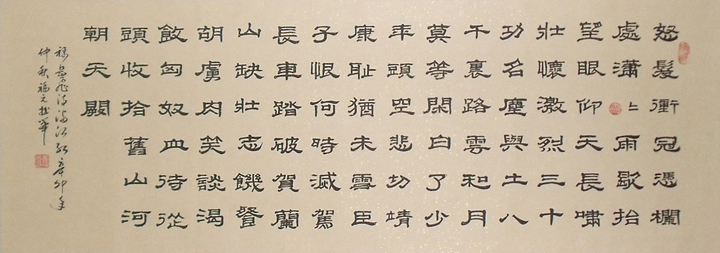 怒髮衝冠憑欄
處瀟々雨歇抬
望眼仰天長嘯
壯懷激烈三十
功名塵與土八
千裏路雲和月
莫等閑白了少
年頭空悲切靖
康耻猶未雪臣
子恨何時滅駕
長車踏破賀蘭
山缺壯志饑餐
胡虜肉笑談渴
飲匈奴血待從
頭收拾舊山河
朝天闕
飛詩滿江紅辛卯年
仲秋福元